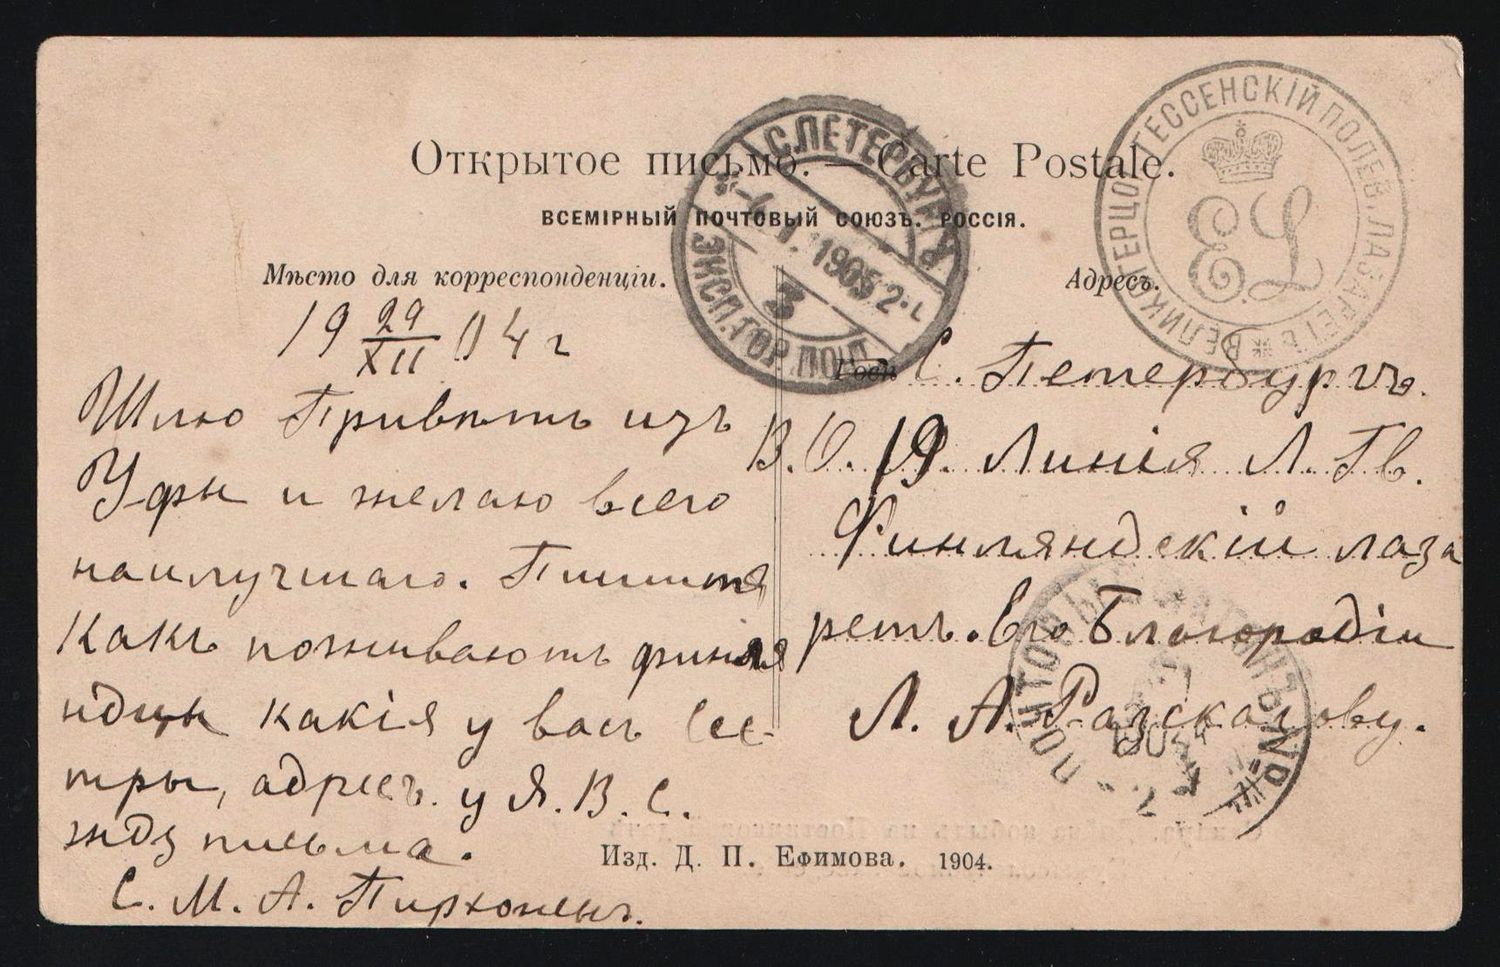 Открытое письмо. — Carte Postale.
ВСЕМІРНЫЙ ПОЧТОВЫЙ СОЮЗЪ. РОССІЯ.
Мѣсто для корреспонденціи.
Адресъ.
19 29/XII 04 г
Шлю Привѣтъ изъ
Уфы и желаю всего
наилучшаго. Пишите
Какъ поживаютъ финля
ндцы какія у васъ Сес-
тры, адресъ у Я. В. С.
жду письма.
С. М. А. Пирхоненъ.
С. Петербургъ.
В. О. 19. Линія Л. Гв.
Финляндскій лаза
ретъ. Его Благородію
Л. А.
Изд. Д. П. Ефимова. 1904.
С.ПЕТЕРБУРГЪ
1905
3
ЭКСП. ГОР. ПОЧТ.
ВЕЛИКОГЕРЦОГ. ГЕССЕНСКІЙ ПОЛЕВ. ЛАЗАРЕТЪ
E.L.
ПОЧТОВЫЙ ВАГОНЪ №